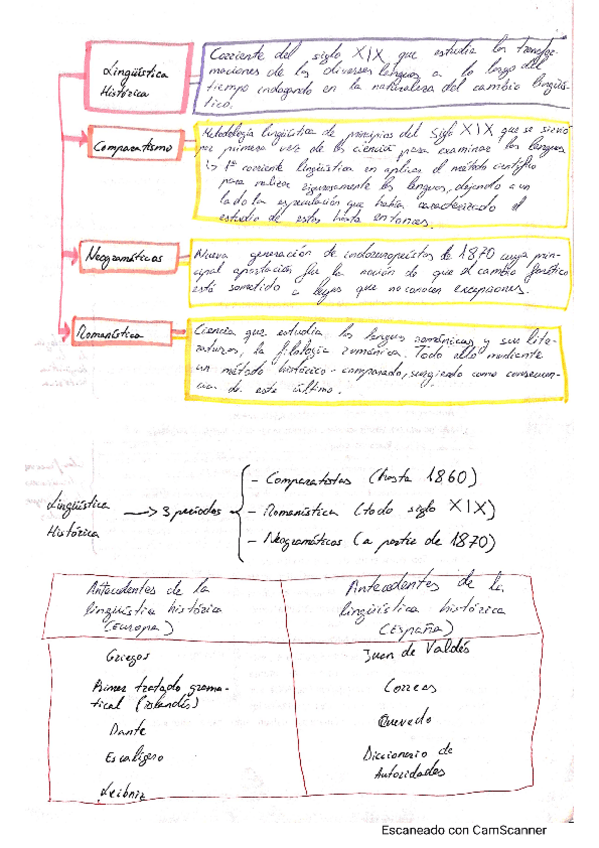 Lingüística
Histórica
Corriente del siglo XIX que estudia las transfor-
maciones de las diversas lenguas a lo largo del
tiempo indagando en la naturaleza del cambio lingüís-
tico.
Comparatismo
Metodología lingüística de principios del siglo XIX que se sirvió
por primera vez de la ciencia para examinar las lenguas
↳ 1ª corriente lingüística en aplicar el método científico
para analizar rigurosamente las lenguas, dejando a un
lado la especulación que había caracterizado el
estudio de estas hasta entonces.
Neogramáticos
Nueva generación de indoeuropeístas de 1870 cuya prin-
cipal aportación fue la noción de que el cambio fonético
está sometido a leyes que no conocen excepciones.
Romanística
Ciencia que estudia las lenguas románicas y sus lite-
raturas, la filología románica. Todo ello mediante
un método histórico-comparado, surgiendo como consecuen-
cia de este último.
Lingüística
Histórica
→ 3 periodos
- Comparatistas (hasta 1860)
- Romanística (todo siglo XIX)
- Neogramáticos (a partir de 1870)
Antecedentes de la
lingüística histórica
(Europa)
Antecedentes de la
lingüística histórica
(España)
Griegos
Primer tratado grama-
tical (islandés)
Dante
Escalígero
Leibniz
Juan de Valdés
Correas
Quevedo
Diccionario de
Autoridades
Escaneado con CamScanner